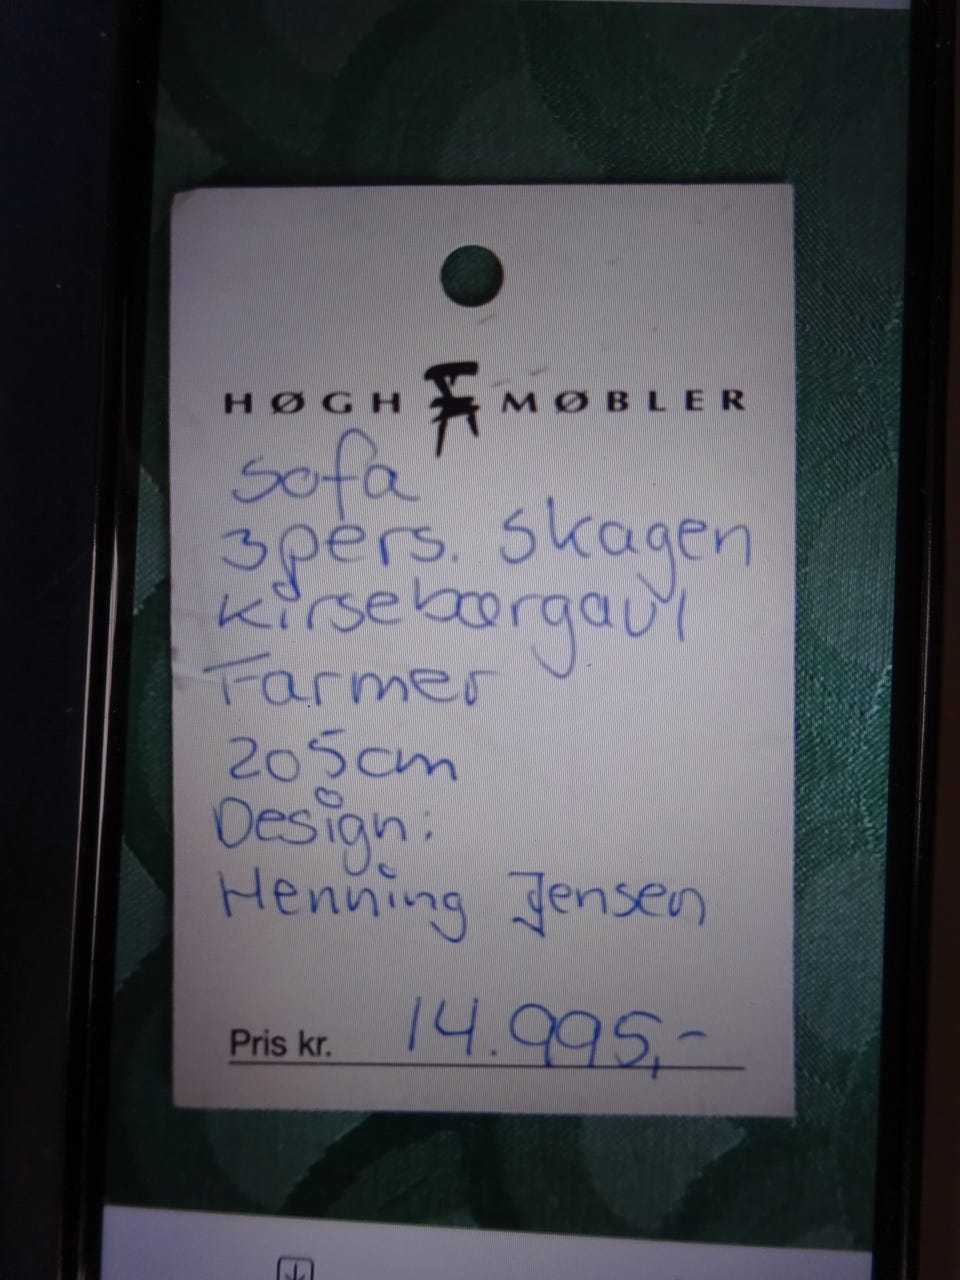 HØGH MØBLER
Sofa
3pers. Skagen
Kirsebærgavl
Farmer
205cm
Design:
Henning Jensen
Pris kr. 14.995,-